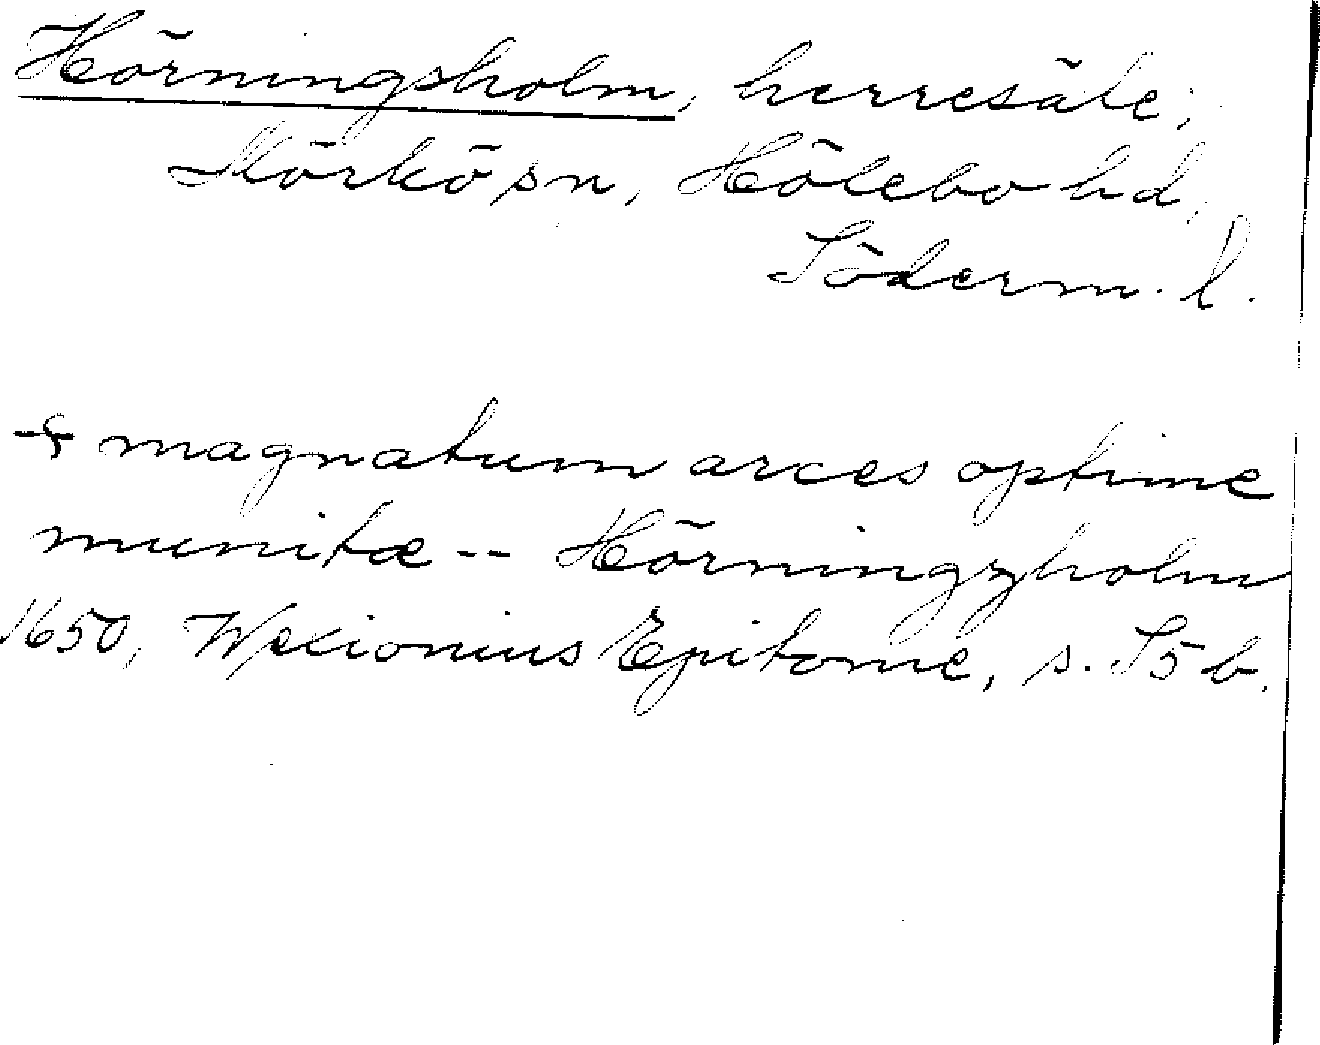 Hörningsholm, herresäte,
Mörkö sn, Hölebo hd,
Söderm. l.
& magnatum arces optime
munitæ -- Hörningzholm
1650, Wexionius Epitome, s. S5 b.